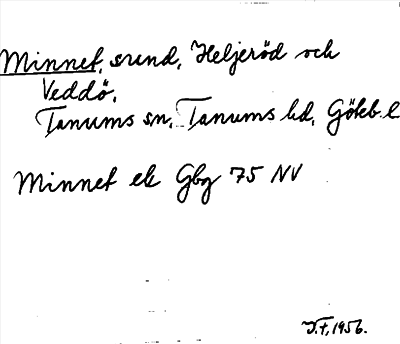 Minnet, sund, Heljeröd och
Veddö,
Tanums sn, Tanums hd, Göteb. l
Minnet ek Gbg 75 NV
J.F. 1956.